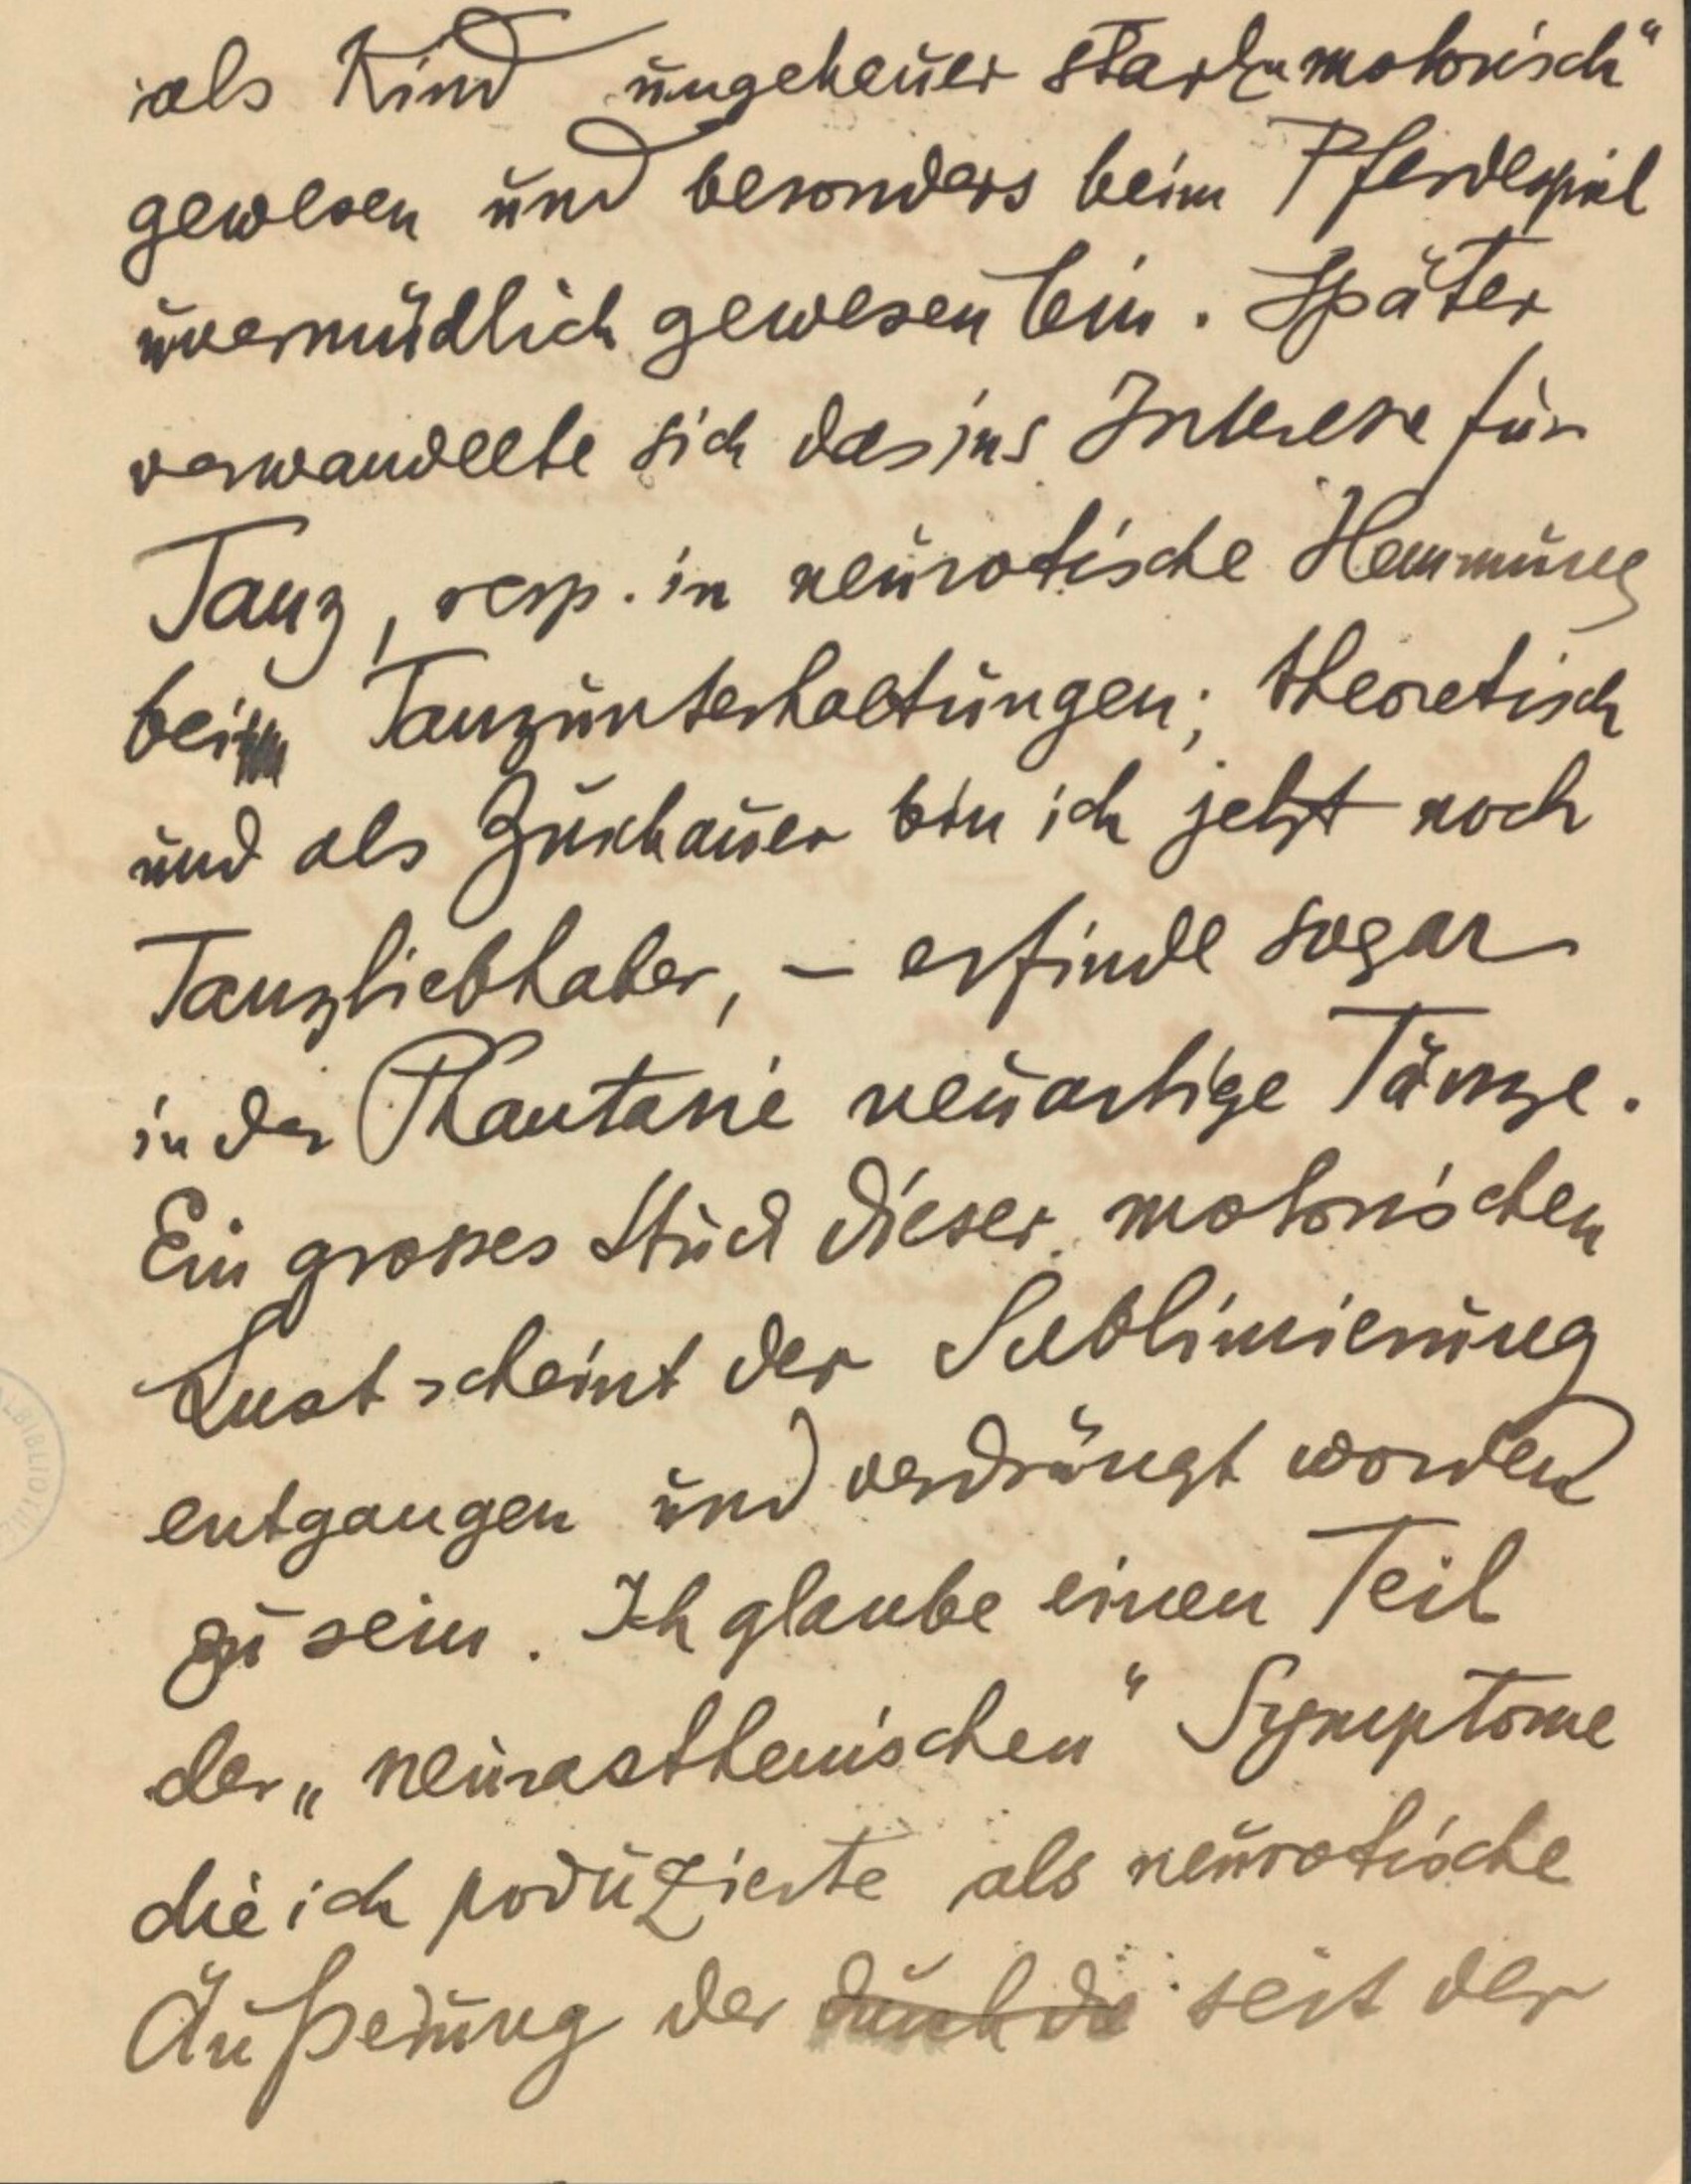 als Kind ungeheuer stark „motorisch“
gewesen und besonders beim Pferdespiel
unermüdlich gewesen bin. Später
verwandelte sich das ins Interesse für
Tanz, resp. in neurotische Hemmung
bei Tanzunterhaltungen; theoretisch
und als Zuschauer bin ich jetzt noch
Tanzliebhaber, – erfinde sogar
in der Phantasie neuartige Tänze.
Ein grosses Stück dieser motorischen
Lust scheint der Sublimierung
entgangen und verdrängt worden
zu sein. Ich glaube einen Teil
der „neurasthenischen“ Symptome
die ich produzierte als neurotische
Äußerung der durch die seit der